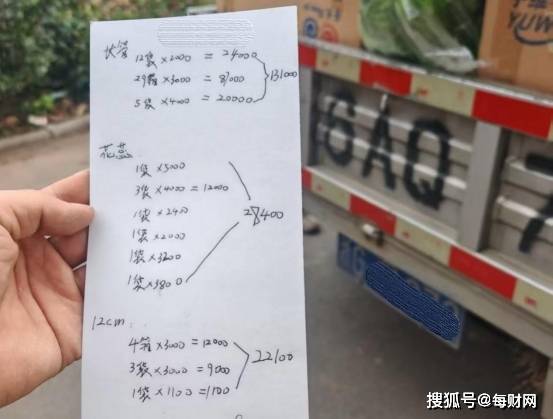 长管 12袋×2000 = 24000
29箱×3000 = 87000
5袋×4000 = 20000
131000
花蕊
1袋×5000
3袋×4000 = 12000
1袋×2400
1袋×2000
1袋×3200
1袋×3800
12cm:
4箱×3000 = 12000
3袋×3000 = 9000
1袋×1100 = 1100
22100
6AQ 7
搜狐号@每财网